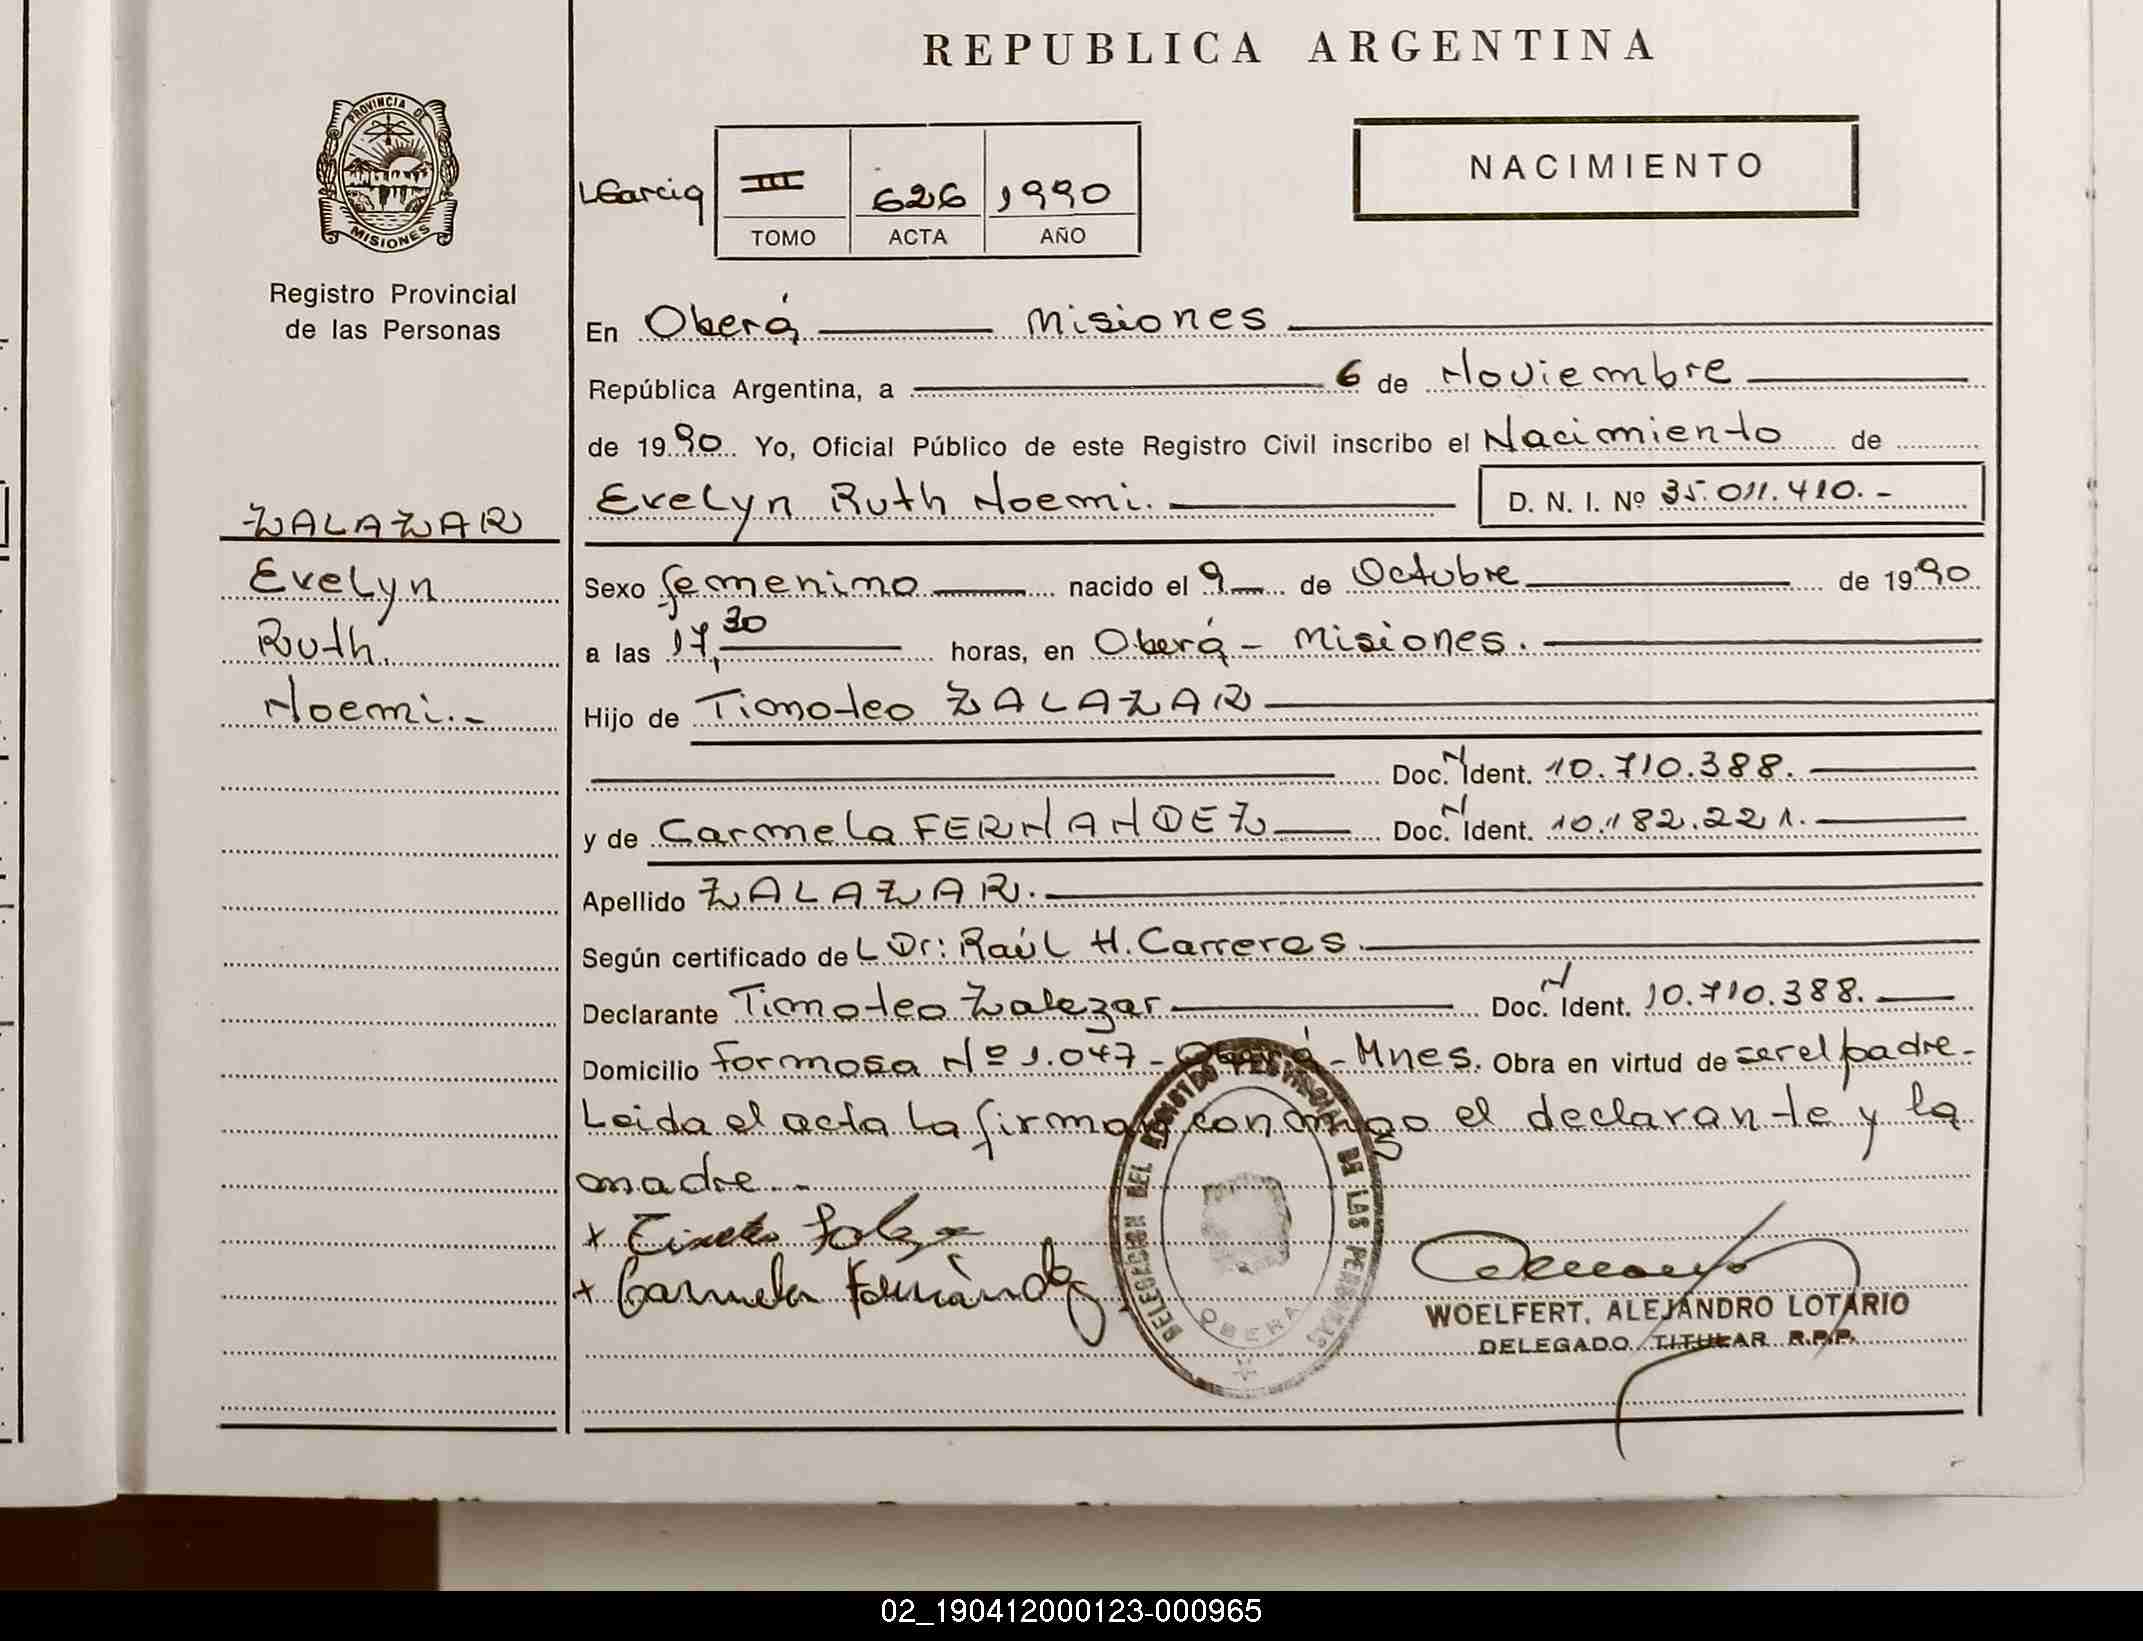 REPUBLICA ARGENTINA
PROVINCIA DE
MISIONES
Registro Provincial
de las Personas
LGarcia
III 626 1990
TOMO ACTA AÑO
NACIMIENTO
En Oberá Misiones
República Argentina, a 6 de Noviembre
de 1990 Yo, Oficial Público de este Registro Civil inscribo el Nacimiento de
Evelyn Ruth Noemi. D. N. I. Nº 35.011.410.-
ZALAZAR
Evelyn
Ruth
Noemi.-
Sexo femenino nacido el 9 de Octubre de 1990
a las 17,30 horas, en Oberá - Misiones.
Hijo de Timoteo ZALAZAR
Doc. N Ident. 10.710.388.
y de Carmela FERNANDEZ Doc. N Ident. 10.182.221.
Apellido ZALAZAR.
Según certificado del Dr: Raúl H. Carreras.
Declarante Timoteo Zalazar Doc. N Ident. 10.710.388.
Domicilio Formosa Nº 1.047 - Oberá - Mnes. Obra en virtud de ser el padre-
Leida el acta la firman conmigo el declarante y la
madre.-
x
x Carmela Fernández
DELEGACION DEL REGISTRO PROVINCIAL DE LAS PERSONAS
OBERA
WOELFERT, ALEJANDRO LOTARIO
DELEGADO TITULAR R.P.P.
02_190412000123-000965